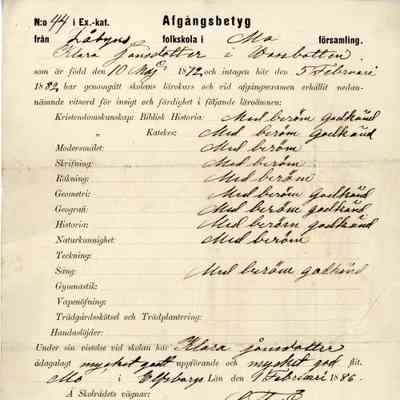 N:o 44 i Ex.-kat. Afgångsbetyg
från Låbyns folkskola i Mo församling.
Klara Jönsdotter i Vassbotten
som är född den 10 Maj 1872, och intagen här den 5 Februari
1882, har genomgått skolans lärokurs och vid afgångsexamen erhållit nedan-
nämnde vitsord för insigt och färdighet i följande läroämnen:
Kristendomskunskap: Biblisk Historia: Med beröm godkänd
„ Katekes: Med beröm godkänd
Modersmålet: Med beröm
Skrifning: Med beröm
Räkning: Med beröm
Geometri: Med beröm godkänd
Geografi: Med beröm godkänd
Historia: Med beröm godkänd
Naturkunnighet: Med beröm
Teckning:
Sång: Med beröm godkänd
Gymnastik:
Vapenöfning:
Trädgårdsskötsel och Trädplantering:
Handaslöjder:
Under sin vistelse vid skolan har Klara Jönsdotter
ådagalagt mycket godt uppförande och mycket god flit.
Mo i Elfsborgs Län den 1 Februari 1886.
Å Skolrådets vägnar: